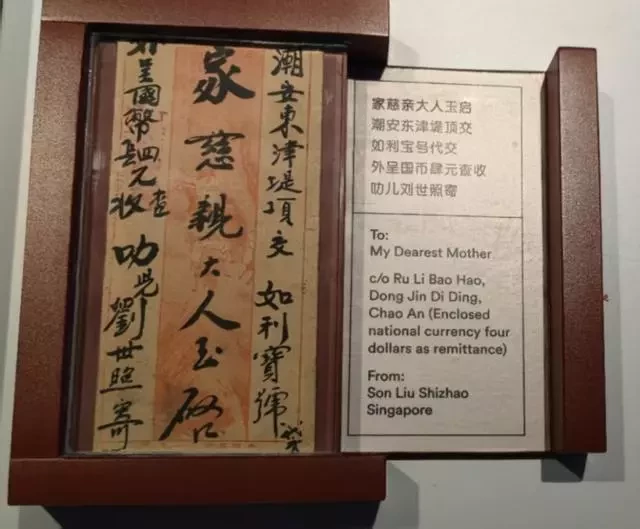 潮安東津堤頂交 如利寶號
家慈親大人玉啓
外呈國幣肆元查收 叻兒劉世照寄
家慈亲大人玉启
潮安东津堤顶交
如利宝号代交
外呈国币肆元查收
叻儿刘世照寄
To:
My Dearest Mother
c/o Ru Li Bao Hao,
Dong Jin Di Ding,
Chao An (Enclosed
national currency four
dollars as remittance)
From:
Son Liu Shizhao
Singapore